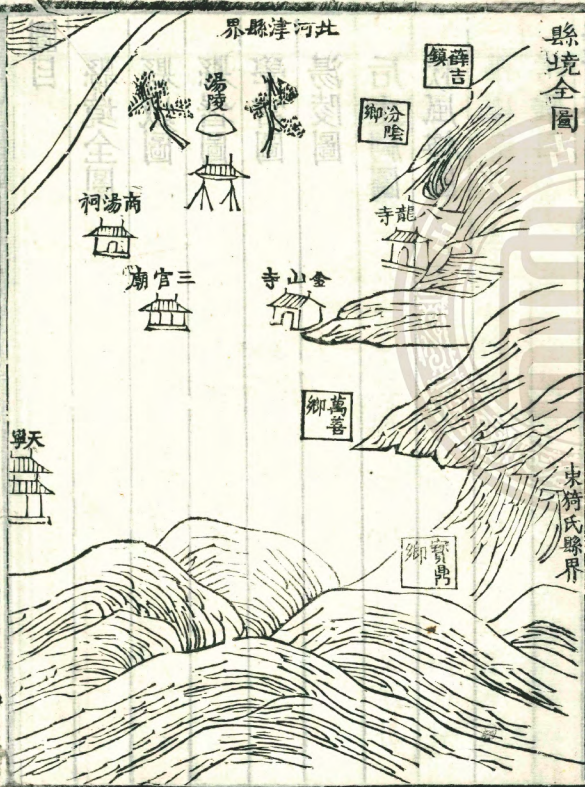 縣境全圖
北河津縣界
薛吉鎮
汾陰鄉
湯陵
八龍寺
商湯祠
三官廟
金山寺
萬善鄉
天寧
東猗氏縣界
寶鼎鄉